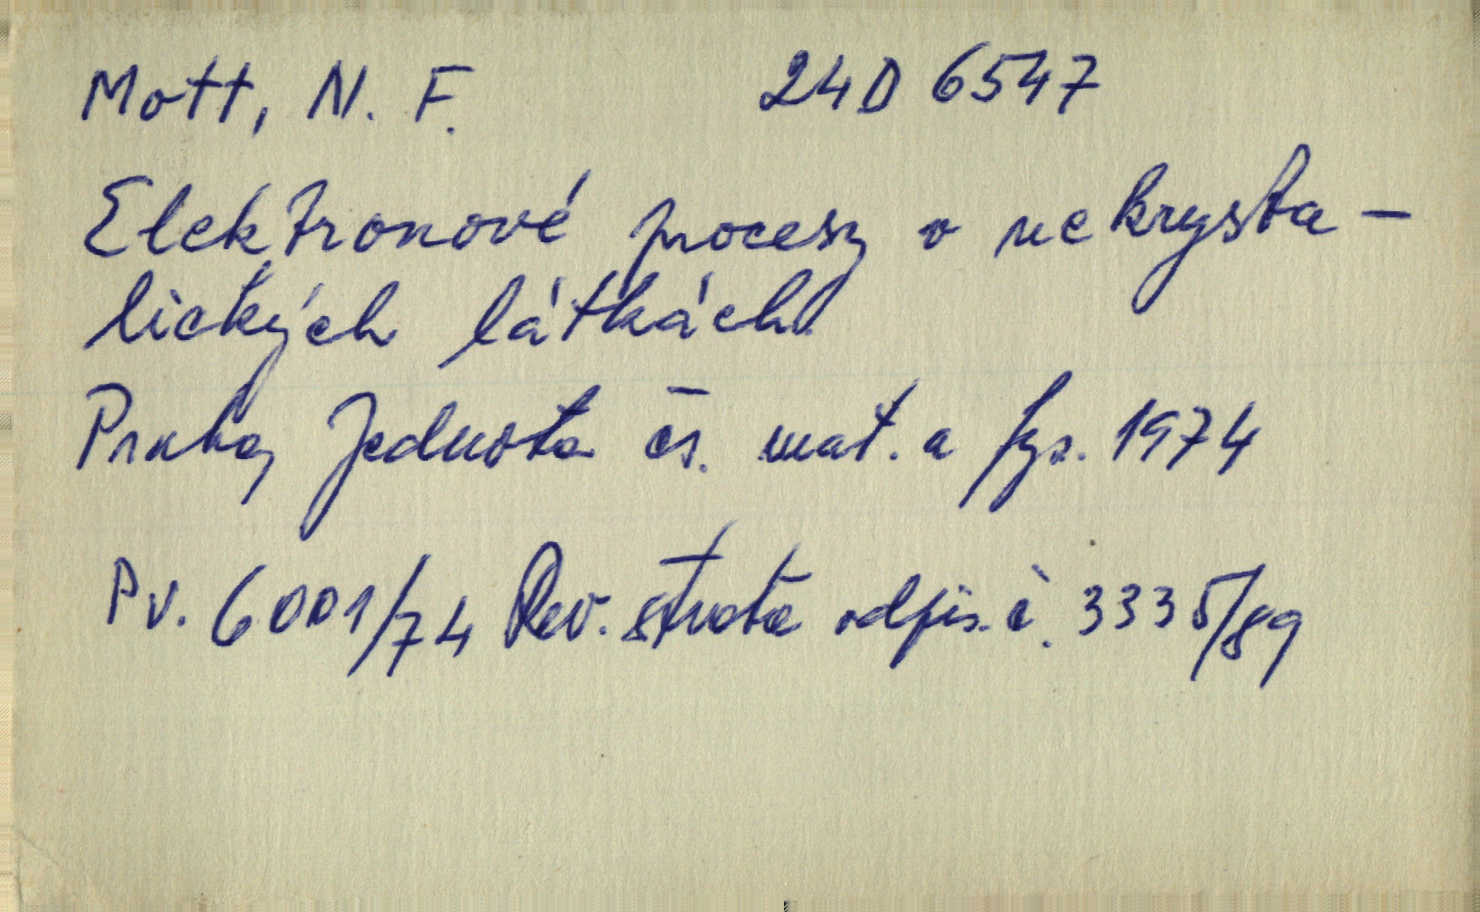 Mott, N. F. 24D 6547
Elektronové procesy v nekrysta-
lických látkách
Praha, Jednota čs. mat. a fys. 1974
Pv. 6001/74 Rev. ztráta odpis. č. 3335/89